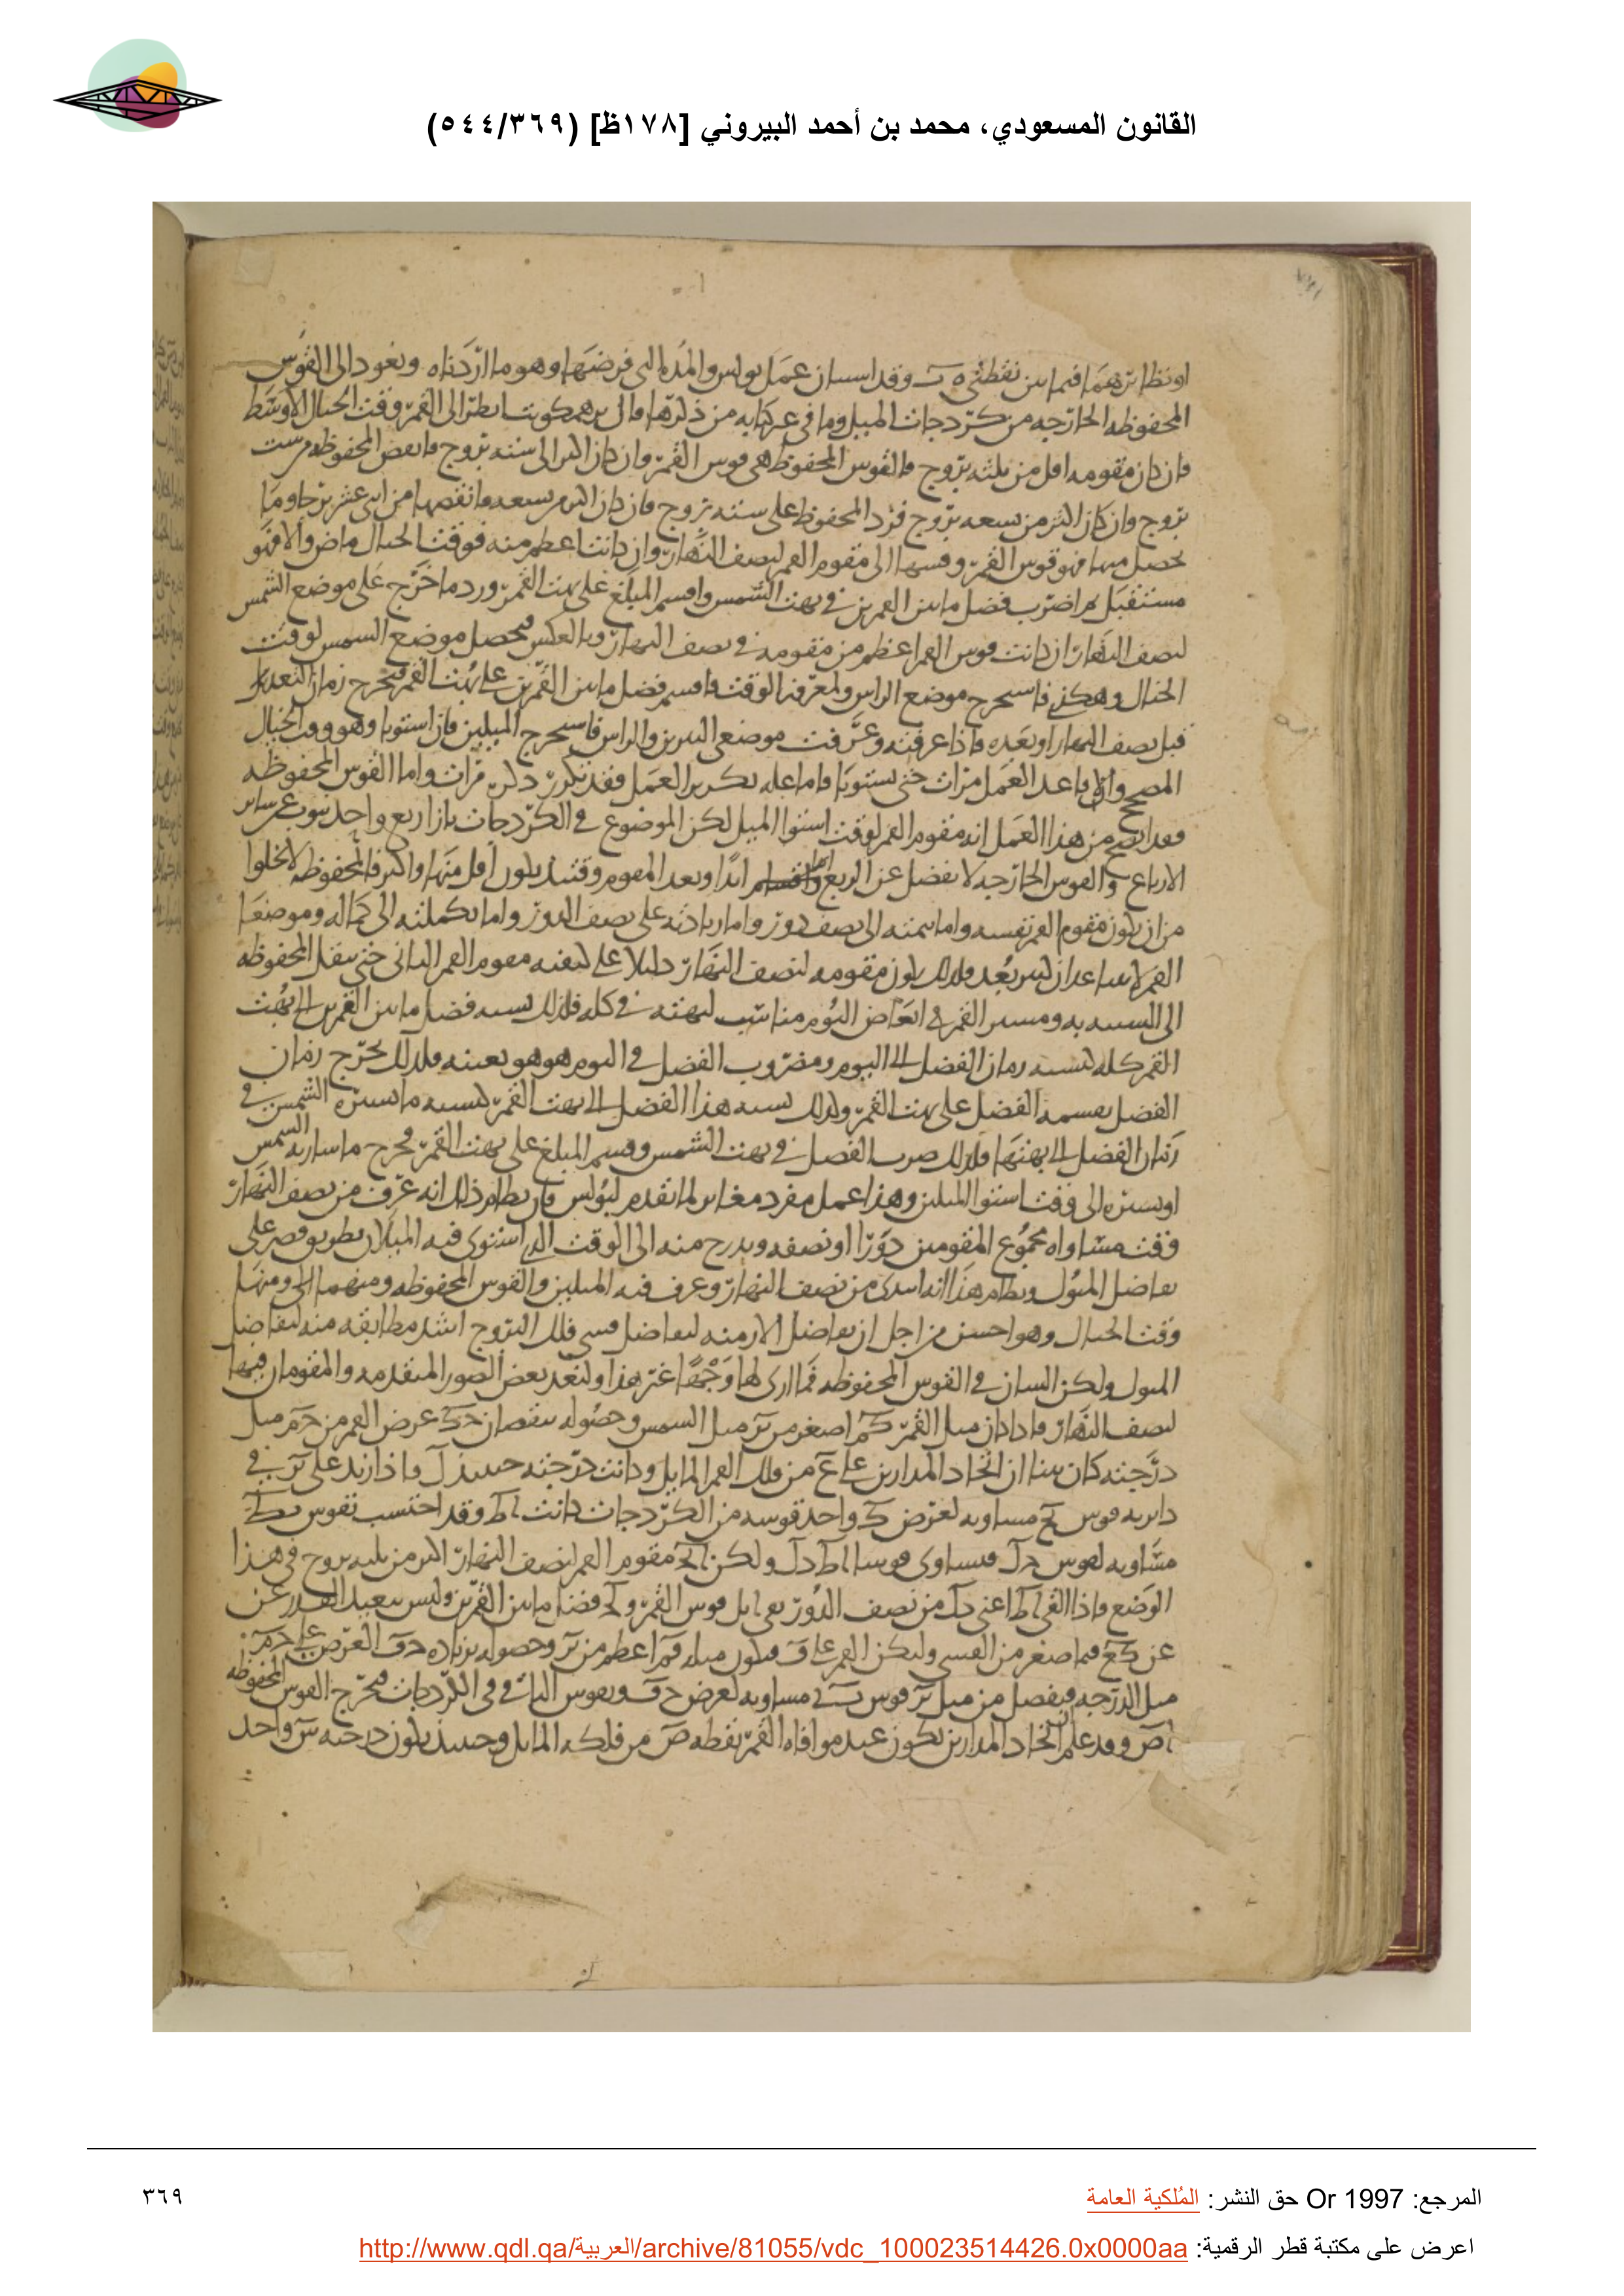 القانون المسعودي، محمد بن أحمد البيروني [١٧٨ظ] (٥٤٤/٣٦٩)
او نظايرهما فيما بين نقطتي وقد استبان عمل بولس والمده التي فرضها وهو ما اردناه ونعود الى القوس
المحفوظه الخارجه من كردجات الميل وما في غير كتابه من ذكرها وانظر الى القمر وقت الخيال الاوسط
فان كان مقومه اقل من ثلثه بروج فالقوس المحفوظه هي قوس القمر وان كان اكثر الى سته بروج فانقص المحفوظه من سته
بروج وان كان اكثر من تسعه بروج فزد المحفوظ على سته بروج فان كان اكثر من تسعه فانقصها من اثني عشر برجا وما
يحصل منها فهو قوس القمر وقسها الى مقوم القمر لنصف النهار وان كانت اعظم منه فوقت الخيال ماض والا فهو
مستقبل ثم اضرب فضل ما بين القمرين في بهت الشمس واقسم المبلغ على بهت القمر ورد ما خرج على موضع الشمس
لنصف النهار ان كانت قوس القمر اعظم من مقومه في نصف النهار وبالعكس فيحصل موضع الشمس لوقت
الخيال وهكذى فاستخرج موضع الراس ولمعرفه الوقت فاقسم فضل ما بين القمرين على بهت القمر فيخرج زمان التعديل
قبل نصف النهار او بعده فاذا عرفته وعرفت موضعى النيرين والراس فاستخرج الميلين فان استويا وهو وقت الخيال
المصحح والا فاعد العمل مرات حتى يستويا فاما عله تكرير العمل فقد تكرر ذكره مرات واما القوس المحفوظه
فقد اتضح من هذا العمل انه مقوم القمر لوقت استوا الميل لكن الموضوع في الكردجات بازا ربع واحد ينوب عن ساير
الارباع والقوس الخارجه لا تفضل عن الربع ابدا وبعد المقوم وقتئذ يكون اقل منها واكثر فالمحفوظه لا تخلوا
من ان يكون مقوم القمر نفسه واما تتمته الى نصف دور واما زيادته على نصف الدور واما تكملته الى كماله وموضعا
القمر لا يتباعدان كثير بعد فلذلك يكون مقومه لنصف النهار دليلا على كيفيه مقوم القمر الثاني حتى ينقل المحفوظه
الى التشبيه به ومسير القمر في ابعاض اليوم مناسب لبهته في كله فلذلك نسبه فضل ما بين القمرين الى بهت
القمر كله كنسبه زمان الفضل الى اليوم ومضروب الفضل في اليوم هو هو بعينه فلذلك يخرج زمان
الفضل بقسمه الفضل على بهت القمر وكذلك نسبه هذا الفضل الى بهت القمر كنسبه ما تسيره الشمس في
زمان الفضل الى بهتها فلذلك ضرب الفضل في بهت الشمس وقسم المبلغ على بهت القمر فخرج ما سارته الشمس
او تسيره الى وقت استوا الميلين وهذا عمل مفرد مغاير لما تقدم لبولس فان نظام ذلك انه عرف من نصف النهار
وقت مساواه مجموع المقومين دورا او نصفه وتدرج منه الى الوقت الذي استوى فيه الميلان بطريق قصر على
تفاضل الميول ونظام هذا انه ابتدى من نصف النهار وعرف فيه الميلين والقوس المحفوظه ومنهما الى ومنها
وقت الخيال وهو احسن من اجل ان تفاضل الازمنه لتفاضل قسي فلك البروج اشد مطابقه منه لتفاضل
الميول ولكن اللسان في القوس المحفوظه فما ارى لها وجها غير هذا ولنعد بعض الصور المتقدمه والمقومان فيها
لنصف النهار فاذا كان ميل القمر اصغر من ميل الشمس وحصوله بنقصان عرض القمر من ميل
درجته كان بينا ان اتحاد المدارين على من فلك القمر المايل وكانت درجته حينئذ فاذا زيد على في
دايره قوس مساويه لعرض واحد قوسه من الكردجات كانت وقد احتسب بقوس
مساويه لقوس فيساوى قوسا ولكن مقوم القمر لنصف النهار اكثر من ثلثه بروج في هذا
الوضع فاذا القي اعني من نصف الدور بقي قوس القمر و فضل ما بين القمرين وليس ببعيد القدر عن
عن فيما صغر من القسي وليكن القمر على فيكون ميله اعظم من وحصوله بزياده العرض على
ميل الدرجه فيفضل من ميل قوس مساويه لعرض وبقوس الباقي في الكردجات فيخرج القوس المحفوظه
وقد علم ان اتحاد المدارين تكون عند موافاه القمر نقطه من فلكه المايل وحينئذ يكون درجته واحد
المرجع: Or 1997 حق النشر: المُلكية العامة
٣٦٩
اعرض على مكتبة قطر الرقمية: http://www.qdl.qa/العربية/archive/81055/vdc_100023514426.0x0000aa